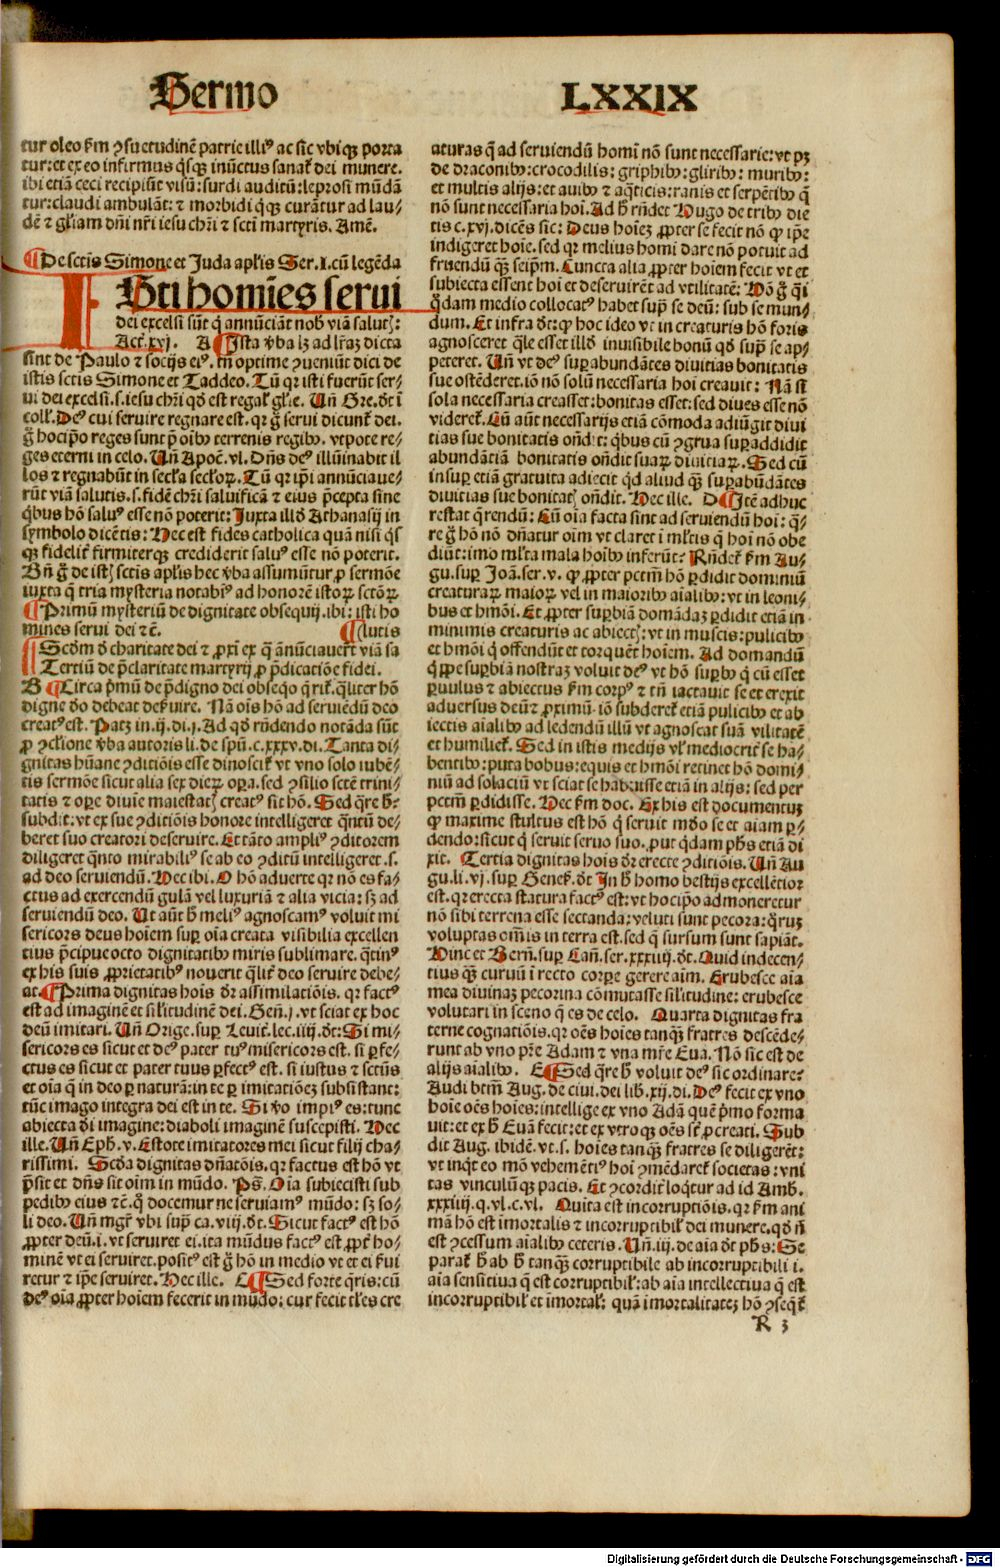 Sermo LXXIX
tur oleo s̄m ↄsuetudinē patrie illiꝰ ac sic̄ vbiq̄ꝫ porta
tur: et ex eo infirmus q̄sqꝫ inūctus sanat̄ dei munere.
ibi etiā ceci recipiūt visū: surdi auditū: leprosi mūdā
tur: claudi ambulāt: ⁊ morbidi q̄qꝫ curātur ad lau⸗
dē ⁊ gl̄iam dn̄i nr̄i iesu chr̄i ⁊ sctī martyris. Amē.
¶ De sctīs Simone et Juda apl̄is Ser. I. cū legēda
ISti homīes serui
dei excelsi sūt q̄ annūciāt nob̄ viā salutꝭ:
Act̄. xvj. A ¶ Ista v̄ba lꝫ ad lr̄aꝫ dicta
sint de Paulo ⁊ socijs eiꝰ. tn̄ optime ↄueniūt dici de
istis sctīs Simone et Taddeo. Tū qꝛ isti fuerūt ser⸗
ui dei excelsi. s. iesu chr̄i qd̄ est regal̄ gl̄ie. Un̄ Gre. d̄t ī
coll̄. Deꝰ cui seruire regnare est. qꝛ g̊ serui dicunt̄ dei.
g̊ hocip̄o reges sunt p̄ oībꝰ terrenis regibꝰ. vtpote re⸗
ges eterni in celo. Un̄ Apoc̄. vl. Dn̄s deꝰ illūinabit il
los ⁊ regnabūt in secl̄a secl̄oꝝ. Tū qꝛ ip̄i annūciaue⸗
rūt viā salutis. s. fidē chr̄i saluificā ⁊ eius p̄cepta sine
q̄bus hō saluꝰ esse nō poterit: Juxta illd̄ Athanasij in
symbolo dicētis: Hec est fides catholica quā nisi q̄s
qꝫ fidelit̄ firmiterqꝫ crediderit saluꝰ esse nō poterit.
Bn̄ g̊ de istꝭ sctīs apl̄is hec v̄ba assumūtur ꝓ sermōe
iuxta q̄ tria mysteria notabꝰ ad honorē istoꝝ sctōꝝ
¶ Primū mysteriū de dignitate obsequij. ibi: isti ho
mines serui dei ⁊c̄. ¶ lutis
¶ Scd̄m d̄ charitate dei ⁊ ꝓxī ex q̄ ānūciauert̄ viā sa
¶ Tertiū de p̄claritate martyrij ꝓ p̄dicatiōe fidei.
B ¶ Circa p̄mū de p̄digno dei obseq̄o q̄rit̄. q̄liter hō
digne d̄o debeat des̄uire. Nā oīs hō ad seruiēdū deo
creatꝰ est. Patꝫ in. ij. di. j. Ad qd̄ rn̄dendo notāda sūt
ꝓ ↄclusione v̄ba autoris li. de spū. c. xxxv. di. Tanta di⸗
gnitas hūane ↄditiōis esse dinoscit̄ vt vno solo iubē⸗
tis sermōe sicut alia sex dieꝝ oꝑa. sed ↄsilio sctē trini⸗
tatis ⁊ oꝑe diuīe maiestatꝭ creatꝰ sit hō. Sed q̄re h̄?
subdit: vt ex sue ↄditiōis honore intelligeret q̄ntū de⸗
beret suo creatori deseruire. Et tāto ampliꝰ ↄditorem
diligeret q̄nto mirabiliꝰ se ab eo ↄditū intelligeret. s.
ad deo seruiendū. Hec ibi. O hō aduerte qꝛ nō es fa⸗
ctus ad exercendū gulā vel luxuriā ⁊ alia vicia: sꝫ ad
seruiendū deo. Ut aūt h̄ meliꝰ agnoscamꝰ voluit mi
sericors deus hoīem suꝑ oīa creata visibilia excellen
tius p̄cipue octo dignitatibꝰ miris sublimare. q̄tinꝰ
ex his suis ꝓprietatibꝰ nouerit q̄lit̄ deo seruire debe⸗
at. ¶ Prima dignitas hoīs d̄r assimilatiōis. qꝛ factꝰ
est ad imaginē et sil̄itudinē dei. Gen̄. j. vt sciat ex hoc
deū imitari. Un̄ Orige. suꝑ Leuit̄. lec. iiij. d̄t: Si mi⸗
sericors es sicut et deꝰ pater tuꝰ misericors est. si ꝑfe⸗
ctus es sicut et pater tuus ꝑfectꝰ est. si iustus ⁊ sctūs
et oīa q̄ in deo ꝑ naturā: in te ꝑ imitatiōeꝫ subsistant:
tūc imago integra dei est in te. Si v̊o impiꝰ es: tunc
abiecta d̄i imagine: diaboli imaginē suscepisti. Hec
ille. Un̄ Eph̄. v. Estote imitatores mei sicut filij cha⸗
rissimi. Scd̄a dignitas dn̄atōis. qꝛ factus est hō vt
p̄sit et dn̄s sit oīm in mūdo. Ps̄. Oīa subiecisti sub
pedibꝰ eius ⁊c̄. q̄ docemur ne seruiamꝰ mūdo: sꝫ so⸗
li deo. Un̄ mgr̄ vbi supͣ ca. viij. d̄t. Sicut factꝰ est hō
ꝓpter deū. i. vt seruiret ei. ita mūdus factꝰ est ꝓpt̄ ho⸗
minē vt ei seruiret. positꝰ est g̊ hō in medio vt et ei s̄ui
retur ⁊ ip̄e seruiret. Hec ille. C ¶ Sed forte q̄ris: cū
deꝰ oīa ꝓpter hoīem fecerit in mūdo: cur fecit tl̄es cre
aturas q̄ ad seruiendū homī nō sunt necessarie: vt pꝫ
de draconibꝰ: crocodilis: griphibꝰ: gliribꝰ: muribꝰ:
et multis alijs: et auibꝰ ⁊ aq̄ticis: ranis et serpētibꝰ q̄
nō sunt necessaria hoī. Ad h̄ rn̄det Hugo de tribꝰ die
tis c. xvj. dicēs sic: Deus hoīeꝫ ꝓpter se fecit nō ꝙ ip̄e
indigeret hoīe. sed qꝛ melius homī dare nō potuit ad
fruendū qꝫ̄ seip̄m. Cuncta alia ꝓpter hoīem fecit vt et
subiecta essent hoī et deseruirēt ad vtilitatē: Hō g̊ q̄i
q̄dam medio collocatꝰ habet supͣ se deū: sub se mun⸗
dum. Et infra d̄t: ꝙ hoc ideo vt in creaturis hō foris
agnosceret q̄le esset illd̄ inuisibile bonū qd̄ supͣ se ap⸗
peteret. Un̄ vt deꝰ suꝑabundātes diuitias bonitatis
sue ostēderet. iō nō solū necessaria hoī creauit: Nā si
sola necessaria creasset: bonitas esset: sed diues esse nō
videret̄. Cū aūt necessarijs etiā cōmoda adiūgit diui
tias sue bonitatis ond̄it: q̄bus cū ↄgrua suꝑaddidit
abundātiā bonitatis ond̄it suaꝝ diuitiaꝝ. Sed cū
insuꝑ etiā gratuita adiecit qd̄ aliud qꝫ̄ suꝑabūdātes
diuitias sue bonitatꝭ ond̄it. Hec ille. D ¶ Itē adhuc
restat q̄rendū: Cū oīa facta sint ad seruiendū hoī: q̄⸗
re g̊ hō nō dn̄atur oīm vt claret ī ml̄tis q̄ hoī nō obe
diūt: imo ml̄ta mala hoībꝰ inferūt? Rn̄det̄ s̄m Au⸗
gu. suꝑ Joā. ser. v. ꝙ ꝓpter pctm̄ hō ꝑdidit dominiū
creaturaꝝ maioꝝ vel in maioribꝰ aīalibꝰ: vt in leoni⸗
bus et hmōi. Et ꝓpter suꝑbiā domādaꝫ ꝑdidit etiā in
minimis creaturis ac abiectꝭ: vt in muscis: pulicibꝰ
et hmōi q̄ offendūt et torquēt hoīem. Ad domandū
q̄ppe suꝑbiā nostraꝫ voluit deꝰ vt hō suꝑbꝰ q̄ cū esset
ꝑuulus ⁊ abiectus s̄m corpꝰ ⁊ tn̄ iactauit se et erexit
aduersus deū ⁊ ꝓximū. iō subderet̄ etiā pulicibꝰ et ab
iectis aīalibꝰ ad ledendū illū vt agnoscat suā vilitatē
et humiliet̄. Sed in istis medijs vl̄ mediocrit̄ se ha⸗
bentibꝰ: puta bobus: equis et hmōi retinet hō domi⸗
niū ad solaciū vt sciat se habuisse etiā in alijs: sed per
pctm̄ ꝑdidisse. Hec s̄m doc. Ex his est documentuꝫ
ꝙ maxime stultus est hō q̄ seruit mūdo se et aīam ꝑ⸗
dendo: sicut q̄ seruit seruo suo. ꝓut q̄dam ph̄s etiā di
xit. Tertia dignitas hoīs d̄r erecte ↄditiōis. Un̄ Au
gu. li. vj. suꝑ Genes̄. d̄t In h̄ homo bestijs excellētior
est. qꝛ erecta statura factꝰ est: vt hocip̄o admoneretur
nō sibi terrena esse sectanda: veluti sunt pecora: q̄ruꝫ
voluptas om̄is in terra est. sed q̄ sursum sunt sapiāt.
Hinc et Bern̄. suꝑ Can̄. ser. xxxiiij. d̄t. Quid indecen⸗
tius qꝫ̄ curuū ī recto corꝑe gerere aīm. Erubesce aīa
mea diuinaꝫ pecorina cōmutasse sil̄itudine: erubesce
volutari in sceno q̄ es de celo. Quarta dignitas fra
terne cognatiōis. qꝛ oēs hoīes tanqꝫ̄ fratres descēde⸗
runt ab vno pr̄e Adam ⁊ vna mr̄e Eua. Nō sic est de
alijs aīalibꝰ. E ¶ Sed q̄re h̄ voluit deꝰ sic ordinare?
Audi btm̄ Aug. de ciui. dei lib̄. xij. di. Deꝰ fecit ex vno
hoīe oēs hoīes: intellige ex vno Adā quē p̄mo forma
uit: et ex h̄ Euā fecit: et ex vtroqꝫ oēs st̄ ꝓcreati. Sub
dit Aug. ibidē. vt. s. hoīes tanqꝫ̄ fratres se diligerēt:
vt inq̄t eo mō vehemētiꝰ hoī ↄmēdaret̄ societas: vni
tas vinculūqꝫ pacis. Et ↄcordit̄ loq̄tur ad id Amb̄.
xxxiiij. q. vl. c. vl. Quīta est incorruptiōis. qꝛ s̄m ani
mā hō est īmortalis ⁊ incorruptibil̄ dei munere. qd̄ n̄
est ↄcessum aīalibꝰ ceteris. Un̄. iij. de aīa d̄t ph̄s: Se
parat̄ h̄ ab h̄ tanqꝫ̄ corruptibile ab incorruptibili. i.
aīa sensitiua q̄ est corruptibil̄: ab aīa intellectiua q̄ est
incorruptibil̄ et īmortal̄: quā īmortalitateꝫ hō ↄseq̄t̄
R 3
Digitalisierung gefördert durch die Deutsche Forschungsgemeinschaft - DFG